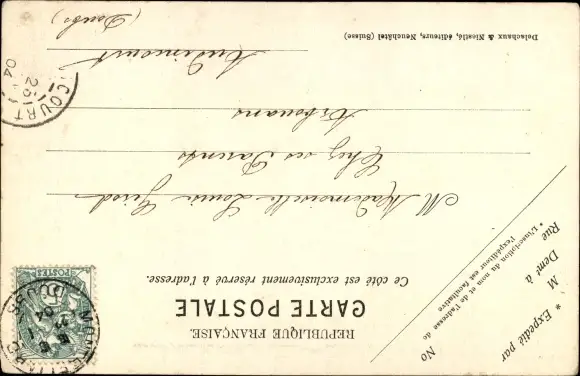 RÉPUBLIQUE FRANÇAISE.
CARTE POSTALE
Ce côté est exclusivement réservé à l'adresse.
* Expédié par
M
Demt à
Rue
No
* L'inscription du nom et de l'adresse de
l'expéditeur est facultative
POSTES
DOUBS
04
M Mademoiselle Louise
Chez ses Parents
Arbouans
Audincourt
(Doubs)
COURT
25
04
Delachaux & Niestlé, éditeurs, Neuchâtel (Suisse)